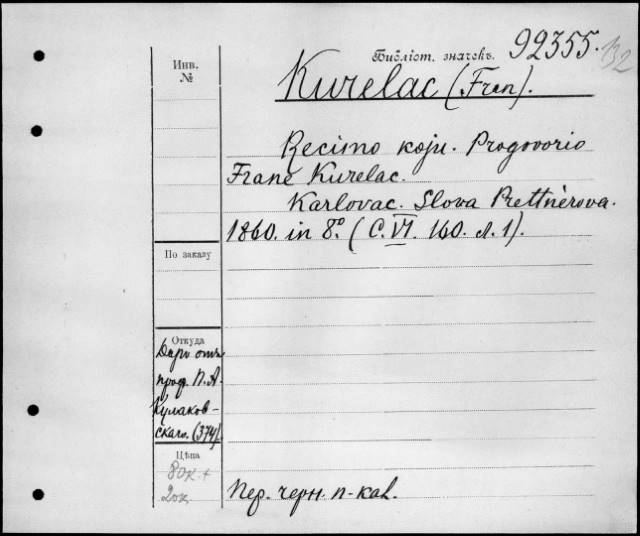 Библіот. значекъ. 92355.
132
Инв.
№
Kurelac (Fran).
Recimo koju. Progovorio
Frane Kurelac.
Karlovac. Slova Prettnèrova.
1860. in 8º. (C. VI. 160. л. 1).
По заказу
Откуда
Даръ отъ
проф. П. А.
Кулаков-
скаго. (374).
Цѣна
80к. +
20к.
Пер. черн. п-кал.